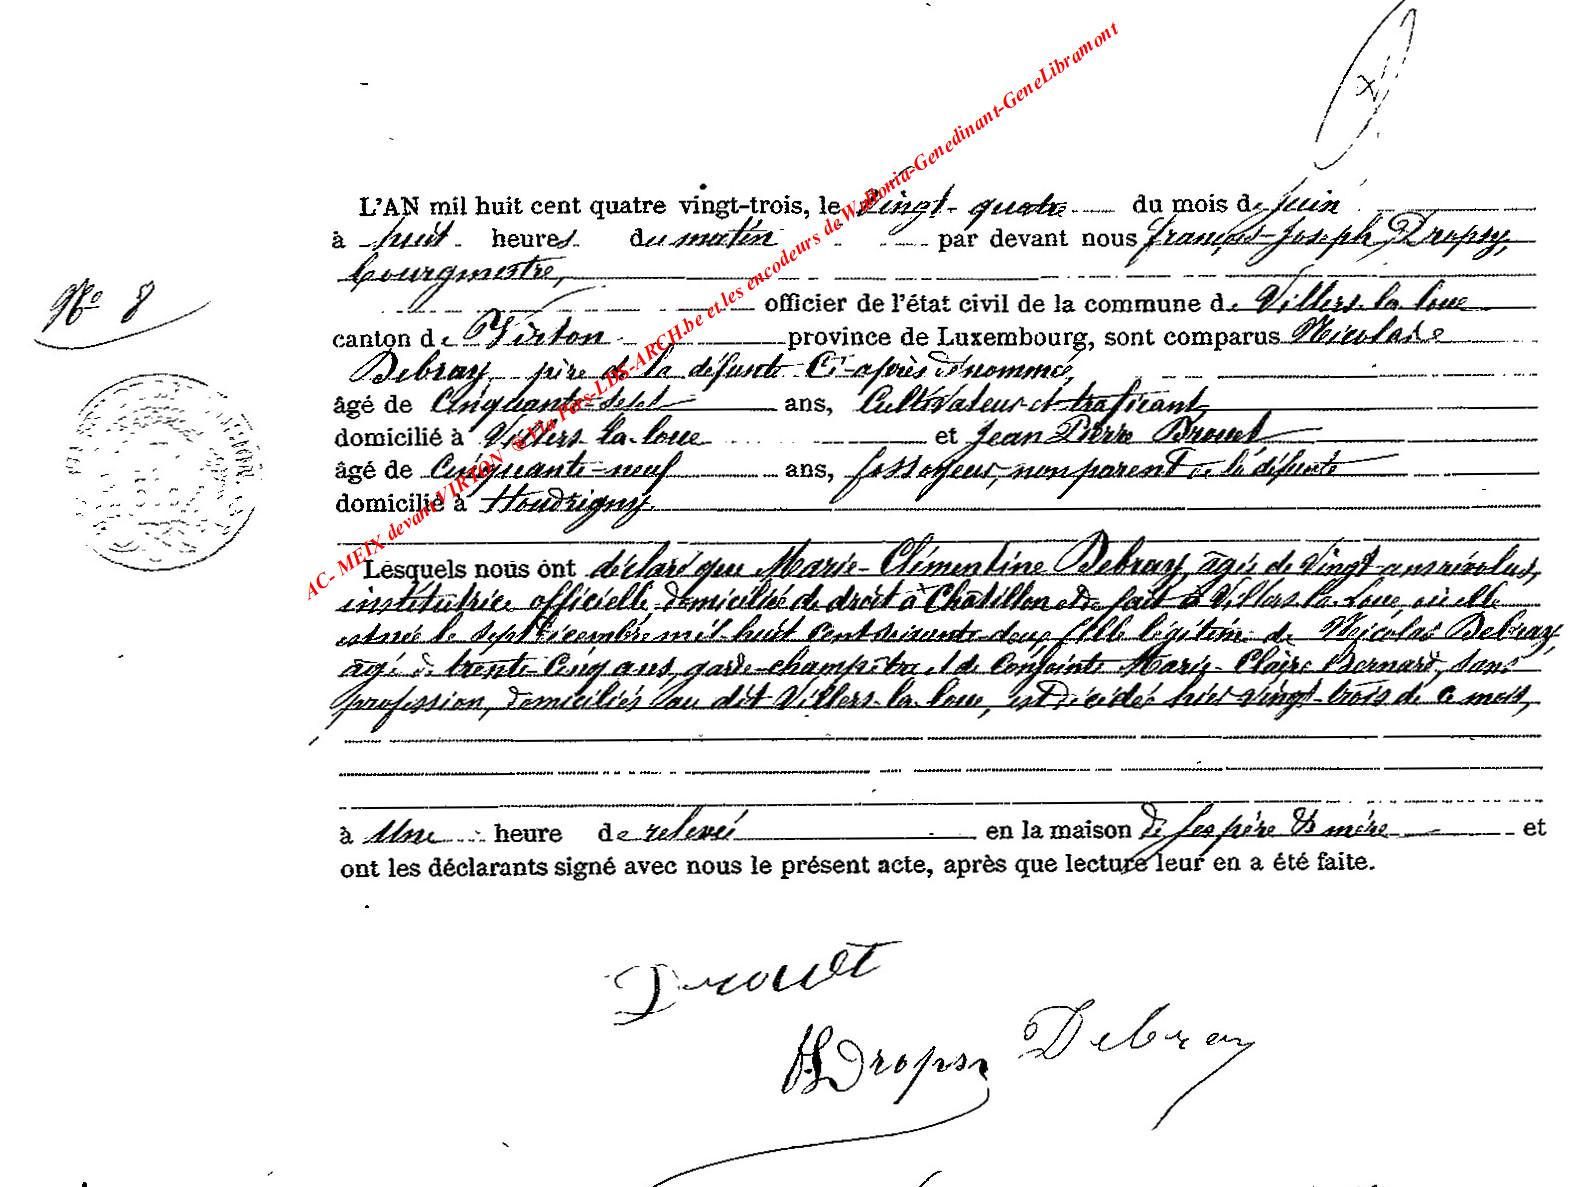 AC- MEIX devant VIRTON @ Via Pers-LDS-ARCH.be et les encodeurs de Wallonia-Genedinant-GeneLibramont
L'AN mil huit cent quatre vingt-trois, le vingt-quatre du mois de juin
à huit heures du matin par devant nous françois-joseph Dropsy,
bourgmestre,
N° 8
officier de l'état civil de la commune de Villers-la-loue
canton de Virton province de Luxembourg, sont comparus Nicolas
Debray, père de la défunte ci-après dénommé,
âgé de cinquante-sept ans, cultivateur et traficant,
domicilié à Villers-la-loue et Jean Pierre Drouet
âgé de cinquante-neuf ans, fossoyeur, non parent de la défunte
domicilié à Houdrigny
Lesquels nous ont déclaré que Marie-Clémentine Debray, âgée de vingt ans révolus,
institutrice officielle, domiciliée de droit à Chatillon et de fait à Villers-la-Loue, où elle
est née le sept décembre mil-huit cent soixante-deux, fille légitime de Nicolas Debray,
âgé de trente cinq ans, garde-champêtre et de conjointe Marie-Claire Bernard, sans
profession, domiciliés au dit Villers-la-loue, est décédée hier vingt-trois de ce mois,
à une heure de relevée en la maison de ses père & mère et
ont les déclarants signé avec nous le présent acte, après que lecture leur en a été faite.
Drouet
Dropsy Debray